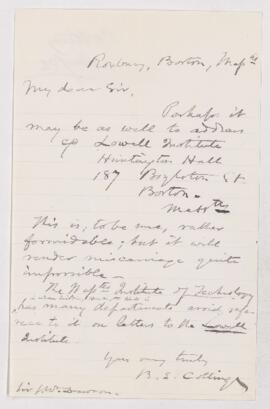 Roxbury, Boston, Masss
My dear Sir,
Perhaps it
may be as well to address
Lowell Institute
Huntington Hall
187 Boylston St.
Boston.
Mass
This is, to be sure, rather
formidable; but it will
render miscarriage quite
impossible.
The Masstts Institute of Technology
has many departments
to it on letters to the Lowell
Institute.
Yours very truly
B. E. Cotting